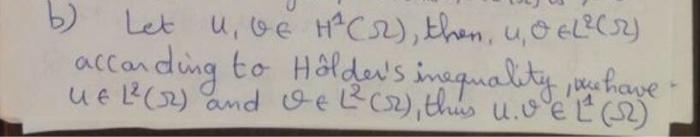 b) Let u, v ∈ H¹(Ω), then, u, v ∈ L²(Ω)
according to Hôlder's inequality, we have
u ∈ L²(Ω) and v ∈ L²(Ω), thus u.v ∈ L¹(Ω)